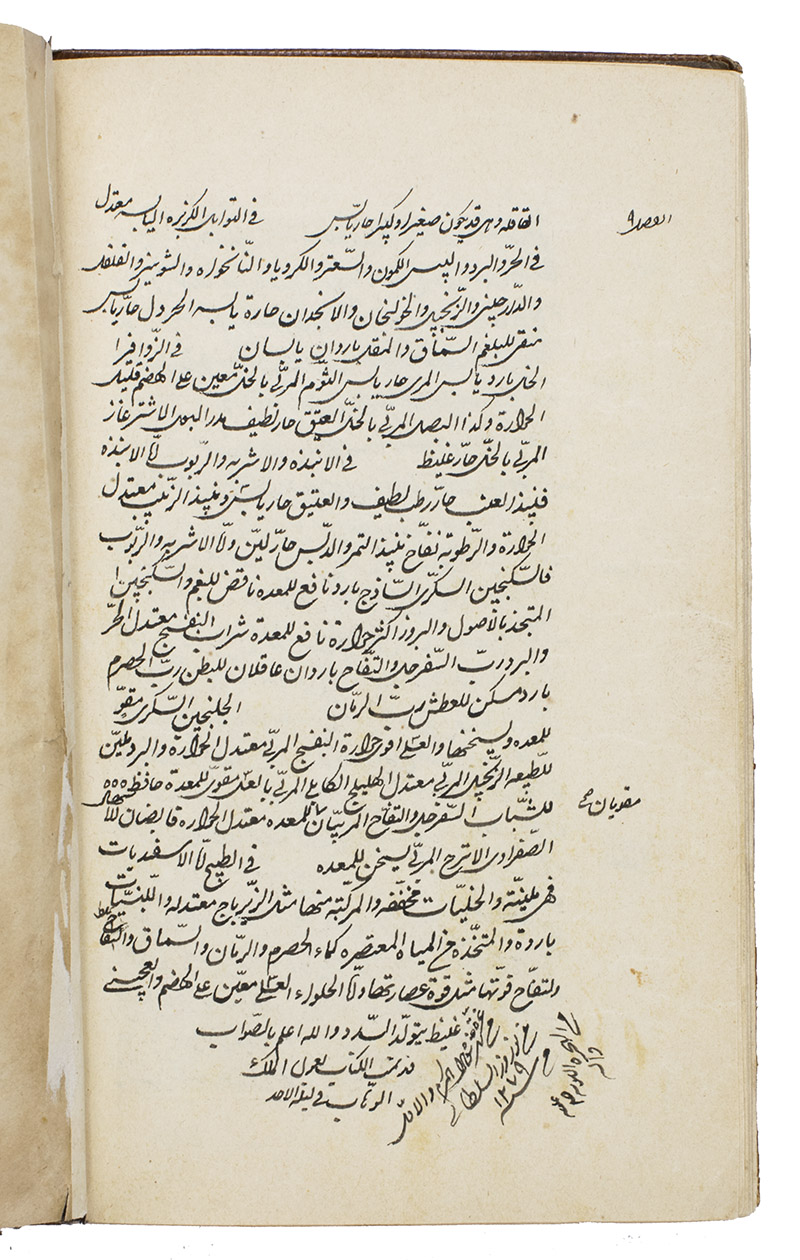 القاقله وهی قد یکون صغیرا و کبیرا حار یابس فی التوابل الکزبره الیابسه معتدل
الفصل ۹
فی الحرّ والبرد والیبس الکمون والسّعتر والکرویا والنّانخواه والشونیز والفلفل
والدّارچینی والزّنجبیل والخولنجان والانجدان حارة یابسه الخردل حارّ یابس
منقّی للبلغم السمّاق والمقل باردان یابسان
الخل بارد یابس المری حار یابس الثّوم المربّی بالخلّ معین علی الهضم قلیل
الحرارة وکذا البصل المربّی بالخلّ العتیق حار لطیف الاشترغاز
المربّی بالخلّ حارّ غلیظ فی الانبذه والاشربه والرّبوب امّا الانبذه
فنبیذ العنب حارّ رطب لطیف والعتیق حار یابس ونبیذ الزّبیب معتدل
الحرارة والرّطوبة نفّاخ نبیذ التمر والدّبس حارّ لیّن وامّا الاشربه والرّبوب
فالسّکنجبین السکرّی السّاذج بارد نافع للمعده ناقض للبلغم والسّکنجبین
المتّخذ بالاصول والبزور اکثر حرارة نافع للمعدة شراب البنفسج معتدل الحرّ
والبرد ربّ السّفرجل والتّفّاح باردان عاقلان للبطن ربّ الحصرم
بارد مسکن للعطش ربّ الرمّان الجلنجبین السّکری مقوّ
للمعده ویسخنها والعسلی اقوی حرارة البنفسج المربّی معتدل الحرارة والبرد ملیّن
للطّبیعه الزّنجبیل المربّی معتدل الهلیلج الکابلی المربّی بالعسل مقوّی للمعدة حافظ
مقویان صح
للشّباب السّفرجل والتّفاح المربّیان للمعده معتدل الحرارة قابضان
الصّفراوی الاترج المربّی یسخن للمعده فی الطبیخ امّا الاسفیدباجات
فهی ملیّنة والخلیّات مجفّفه والمرکّبة منها مثل الزّیرباج معتدله واللّبنیّات
باردة والمتّخذه من المیاه المعتصره کماء الحصرم والرمّان والسّماق
والتفّاح قوّتها مثل قوة عصارتها وامّا الحلواء العسلی معیّن علی الهضم
غلیظ یتولّد السّدد والله اعلم بالصّواب
قد تمت الکتاب بعون الملک
الوهّاب فی لیلة الاحد
سنه ۱۲۷۹